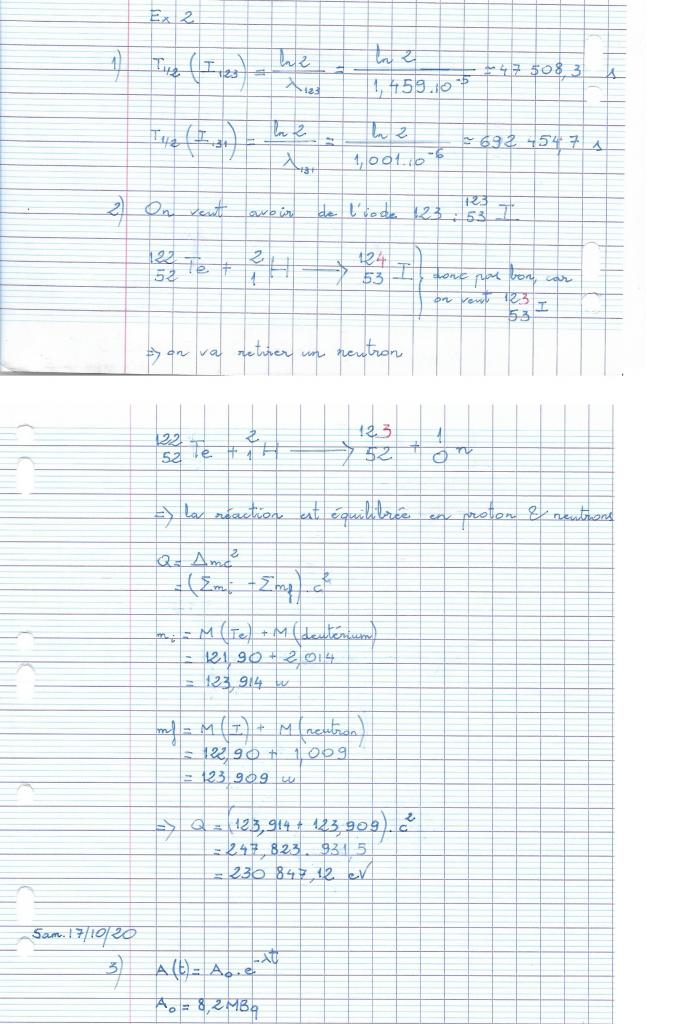 Ex 2
1) T1/2 (I123) = ln 2 / λ123 = ln 2 / 1,459.10^-5 ≈ 47 508,3 s
T1/2 (I131) = ln 2 / λ131 = ln 2 / 1,001.10^-6 ≈ 692 454,7 s
2) On veut avoir de l'iode 123 : ^123_53 I
^122_52 Te + ^2_1 H ⟶ ^124_53 I } donc pas bon, car
on veut ^123_53 I
=> on va retirer un neutron
^122_52 Te + ^2_1 H ⟶ ^123_52 + ^1_0 n
=> la réaction est équilibrée en proton & neutrons
Q = Δmc^2
= (Σmi - Σmf).c^2
mi = M(Te) + M(deutérium)
= 121,90 + 2,014
= 123,914 u
mf = M(I) + M(neutron)
= 122,90 + 1,009
= 123,909 u
=> Q = (123,914 + 123,909).c^2
= 247,823. 931,5
= 230 847,12 eV
Sam. 17/10/20
3) A(t) = A0.e^-λt
A0 = 8,2 MBq